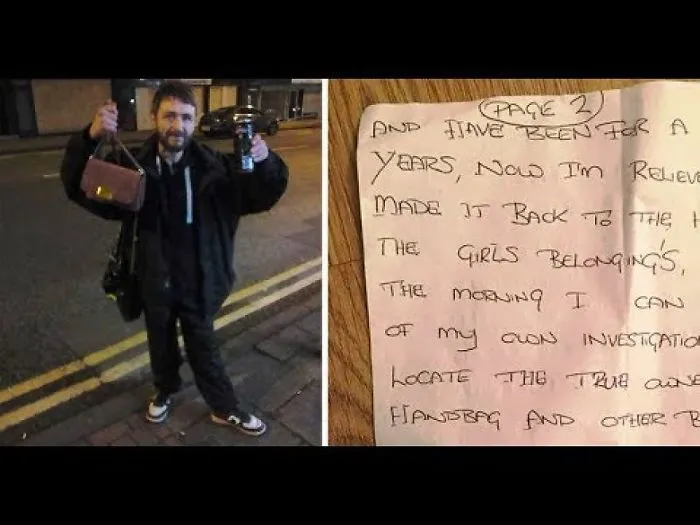 PAGE 2
AND HAVE BEEN FOR A
YEARS, NOW I'M RELIEVE
MADE IT BACK TO THE H
THE GIRLS BELONGING'S,
THE MORNING I CAN
OF MY OWN INVESTIGATION
LOCATE THE TRUE OWNE
HANDBAG AND OTHER B